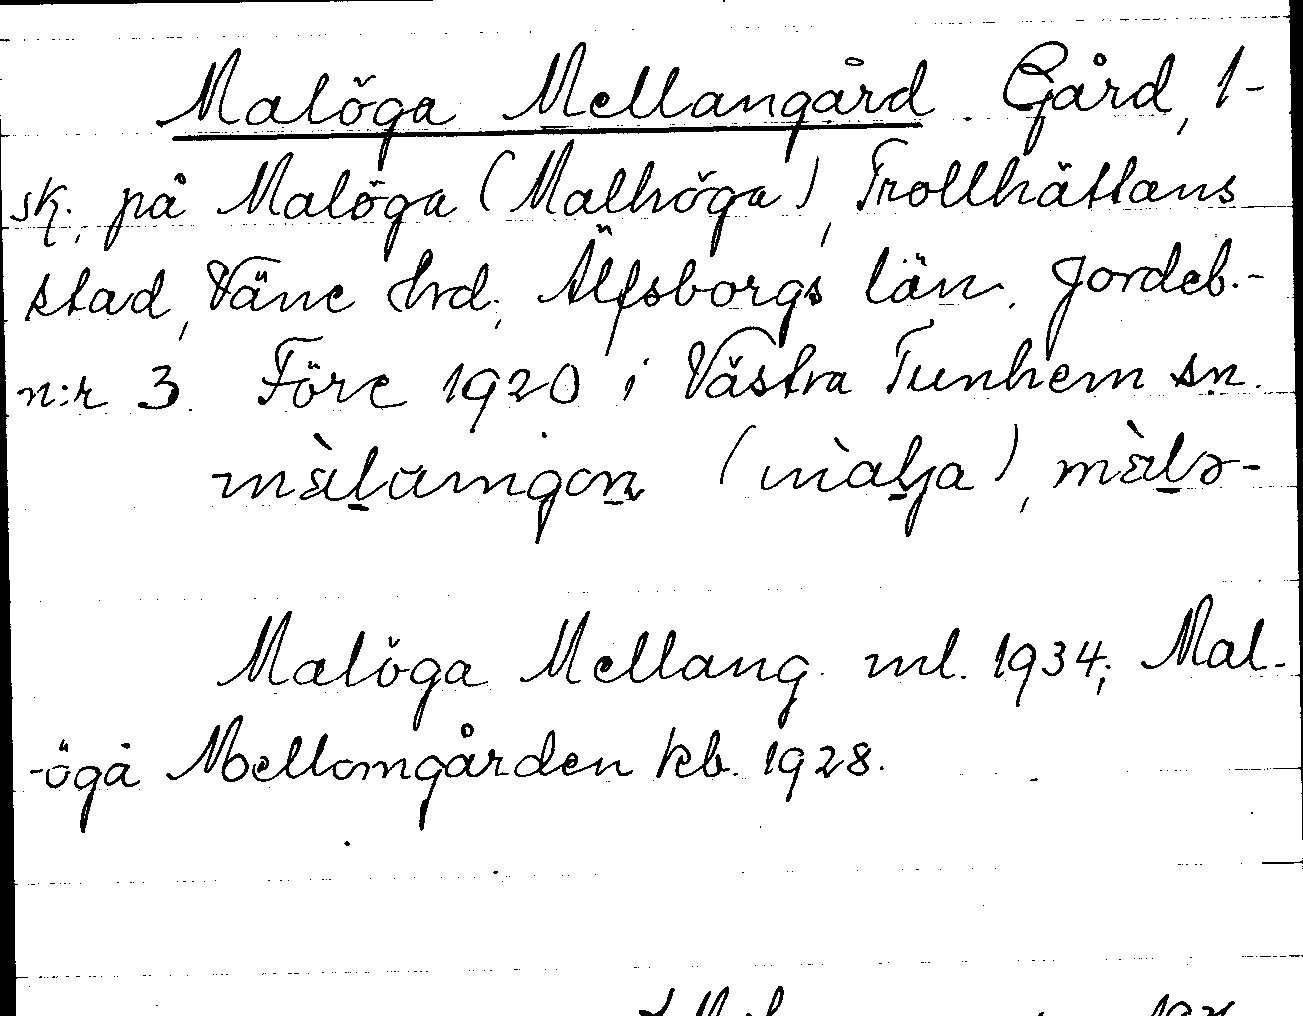 Malöga Mellangård. Gård, 1-
sk., på Malöga (Malhöga), Trollhättans
stad, Väne hrd, Älfsborgs län. Jordeb.-
n:r 3. Före 1920 i Västra Tunhem sn.
Malöga Mellang. ml. 1934; Mal-
-öga Mellomgården kb. 1928.